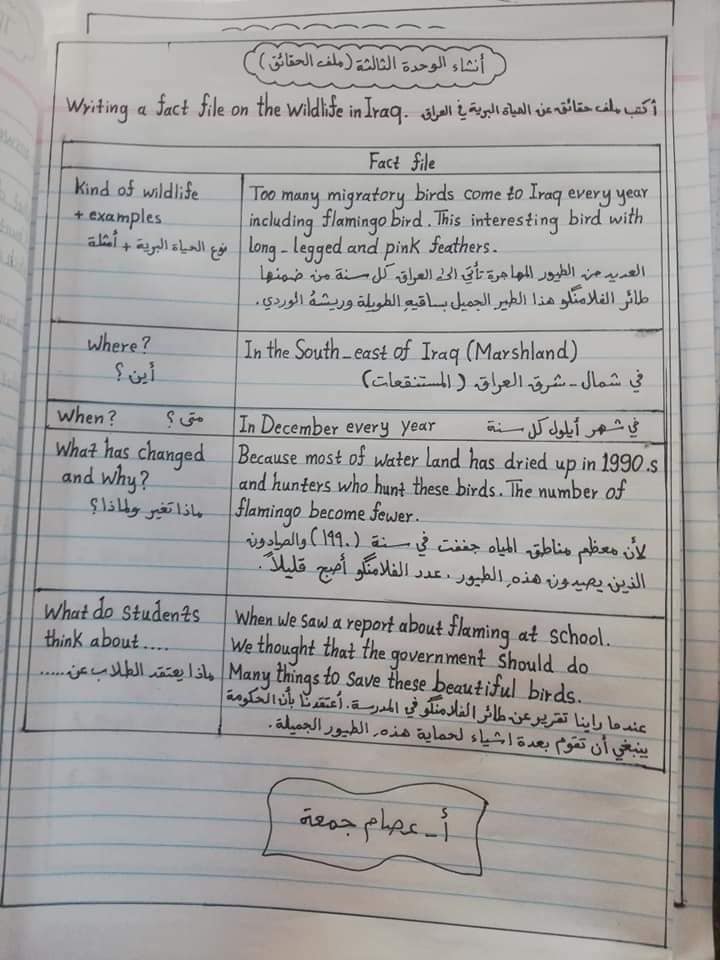 أنشاء الوحدة الثالثة (ملف الحقائق)
Writing a fact file on the wildlife in Iraq. أكتب ملف حقائق عن الحياة البرية في العراق
Fact file
Kind of wildlife
+ examples
نوع الحياة البرية + أمثلة
Too many migratory birds come to Iraq every year
including flamingo bird. This interesting bird with
long-legged and pink feathers.
العديد من الطيور المهاجرة تأتي الى العراق كل سنة من ضمنها
طائر الفلامنكو هذا الطير الجميل بساقيهِ الطويلة وريشهُ الوردي.
Where?
أين ؟
In the South-east of Iraq (Marshland)
في شمال - شرق العراق (المستنقعات)
When? متى ؟
In December every year في شهر أيلول كل سنة
What has changed
and why?
ماذا تغير ولماذا ؟
Because most of water land has dried up in 1990.s
and hunters who hunt these birds. The number of
flamingo become fewer.
لأن معظم مناطق المياه جففت في سنة (١٩٩٠) والصيادون
الذين يصيدون هذهِ الطيور. عدد الفلامنگو أصبح قليلاً.
What do students
think about....
ماذا يعتقد الطلاب عن.....
When we saw a report about flaming at school.
We thought that the government should do
Many things to save these beautiful birds.
عندما راينا تقرير عن طائر الفلامنگو في المدرسة. أعتقدنا بأن الحكومة
ينبغي أن تقوم بعدة اشياء لحماية هذهِ الطيور الجميلة.
أ - عصام جمعة